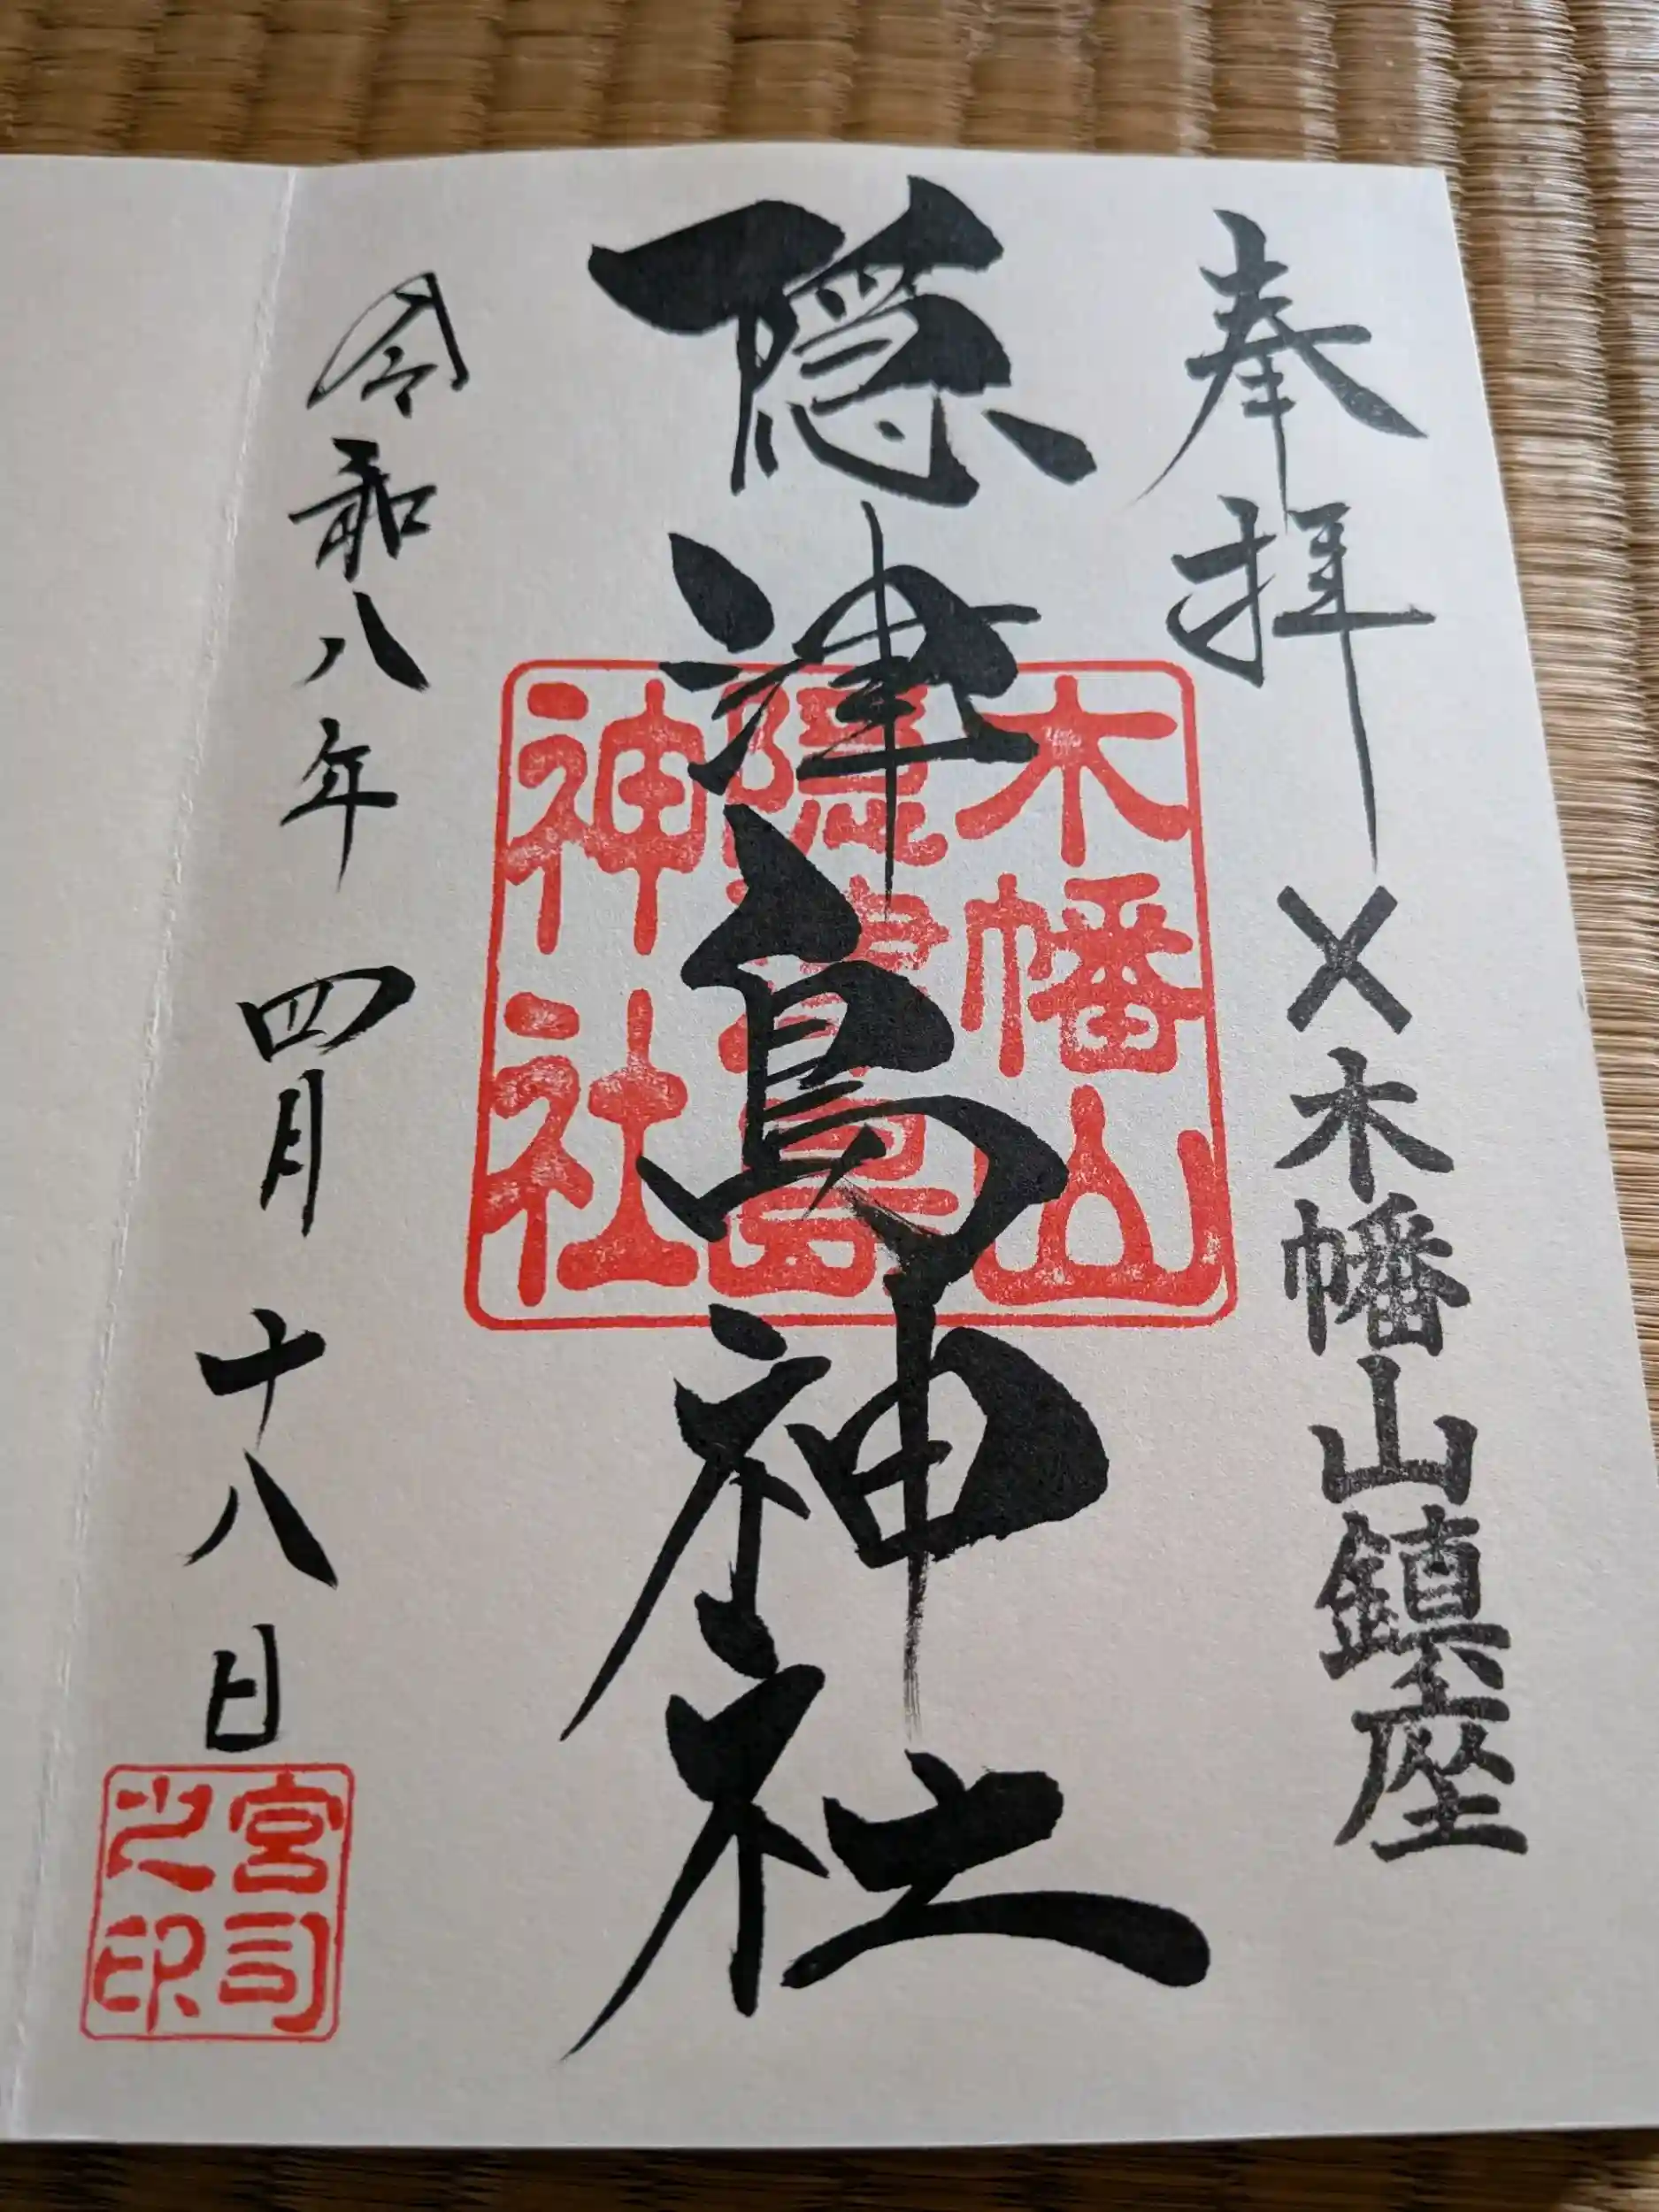 奉拝
〆木幡山鎮座
隠津島神社
木幡山
隠津島
神社
令和八年 四月 十八日
宮司
之印